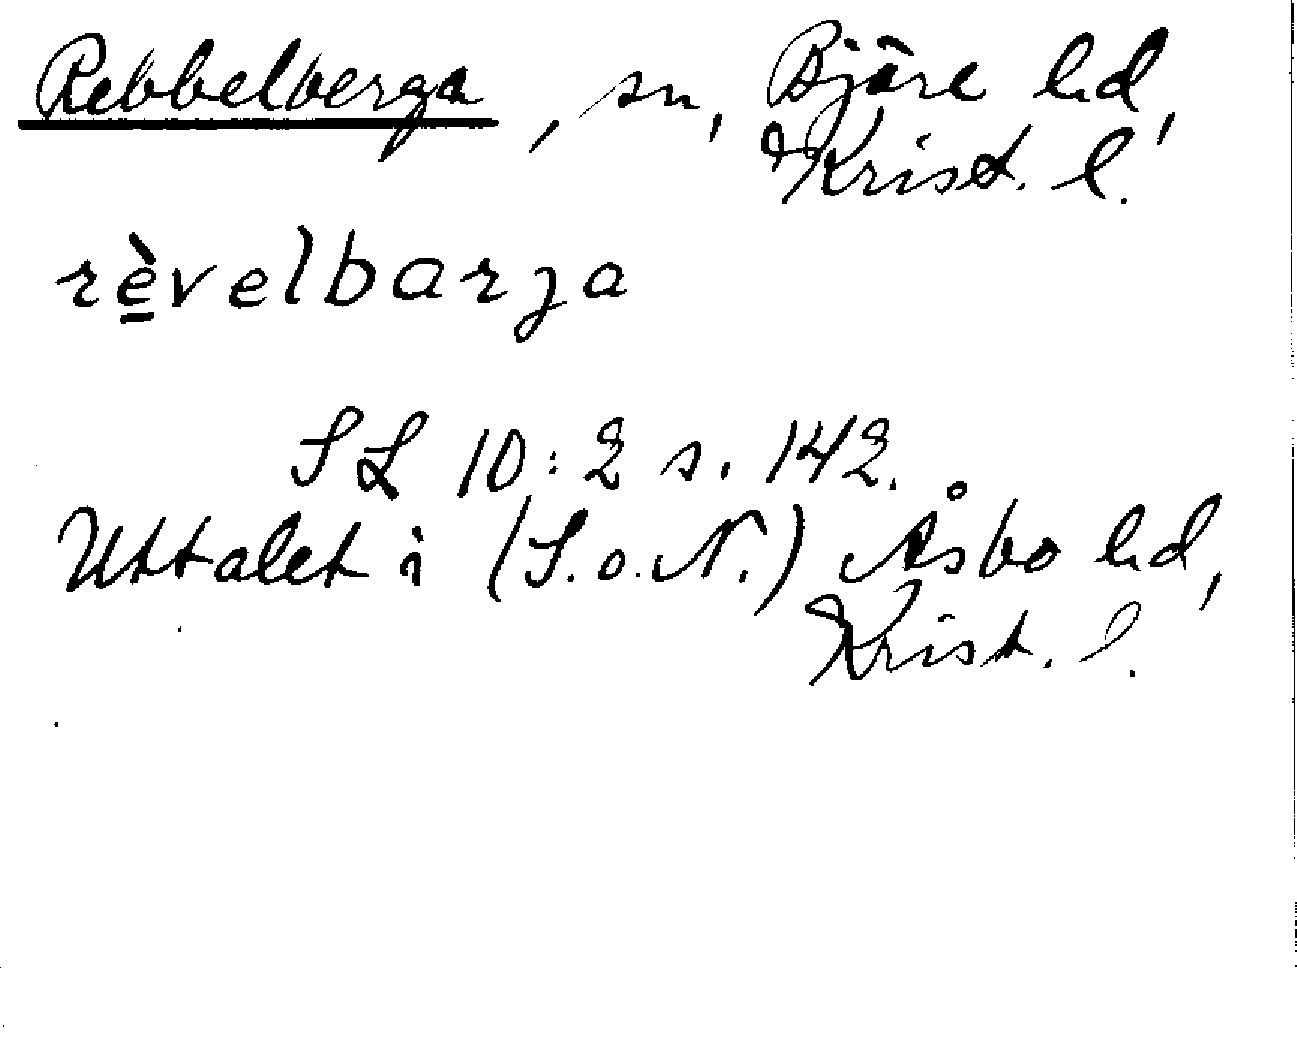 Rebbelberga, sn, Bjäre hd,
Krist. l.
rèvelbarza
SL 10:2 s. 142.
Uttalet i (S.o.N.) Åsbo hd,
Krist. l.